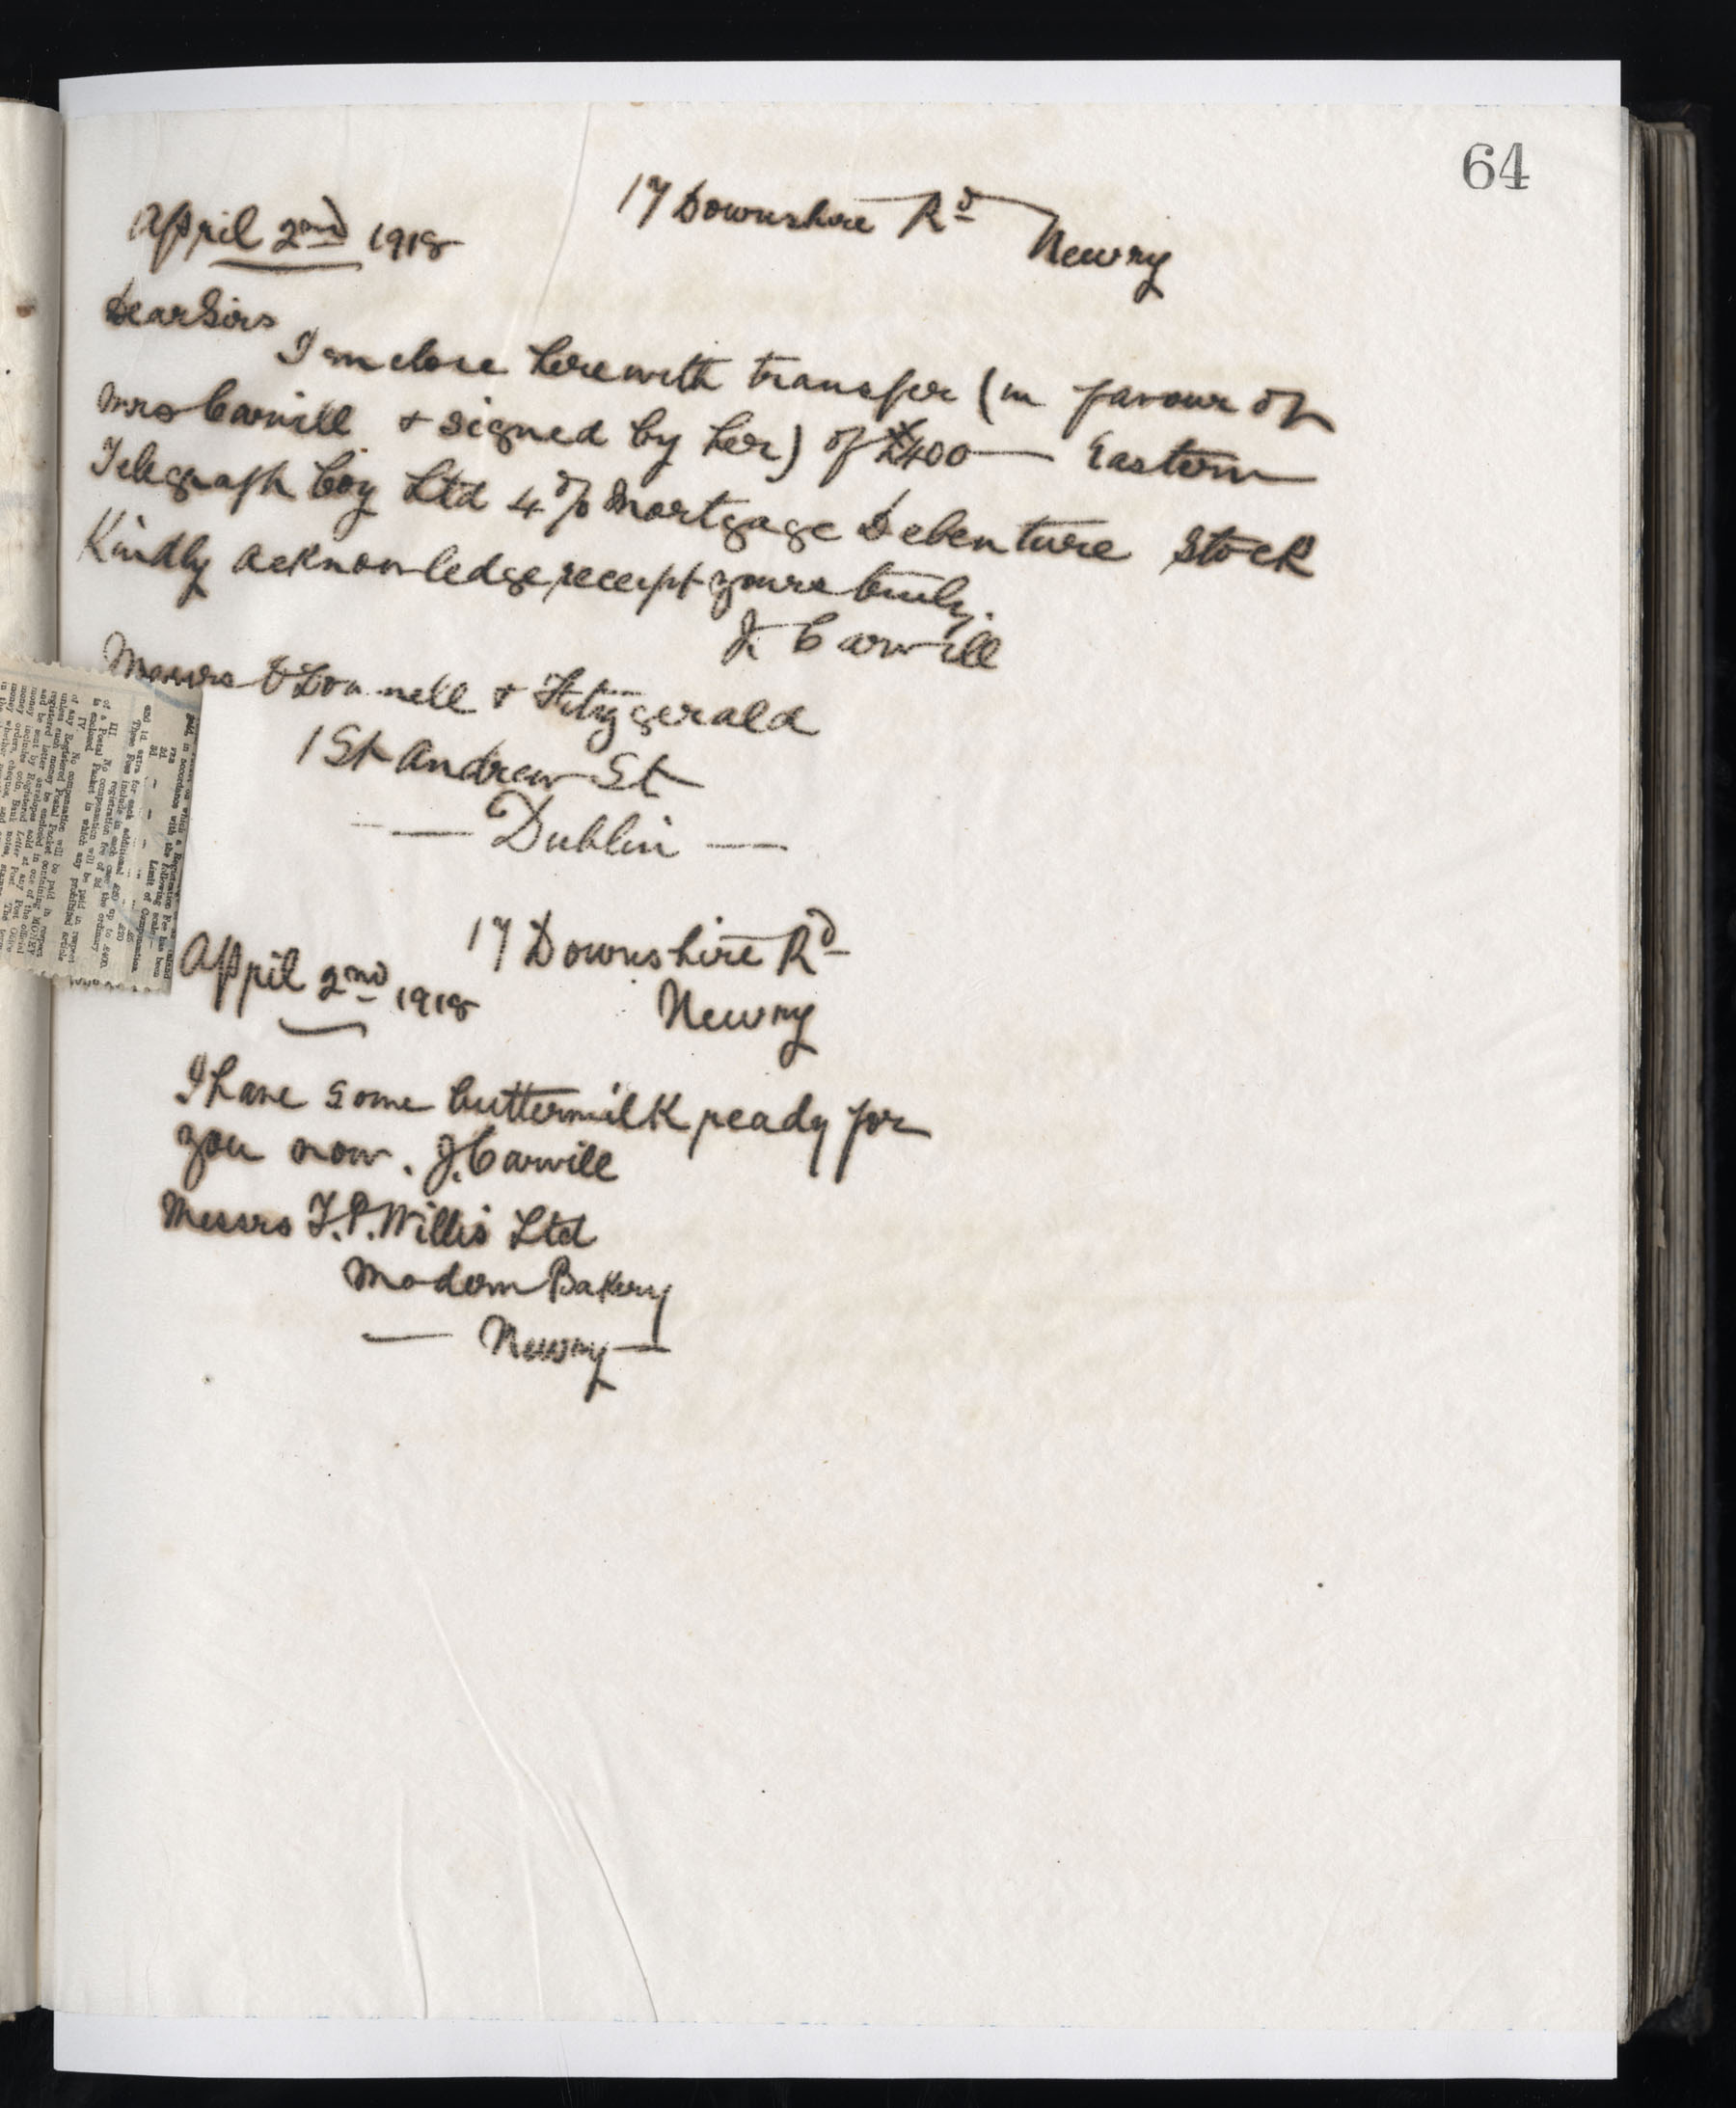 64
17 Downshire Rd
Newry
April 2nd 1918
Dear Sirs
I enclose herewith transfer (in favour of
Mrs Carvill + signed by her) of £400 — Eastern
Telegraph Coy Ltd 4% Mortgage Debenture Stock
Kindly acknowledge receipt yours truly.
J Carvill
Messrs O'Donnell + Fitzgerald
1 St Andrew St
— Dublin —
17 Downshire Rd
April 2nd 1918
Newry
I have some buttermilk ready for
you now. J. Carvill
Messrs F.P. Willis Ltd
Modern Bakery
— Newry —